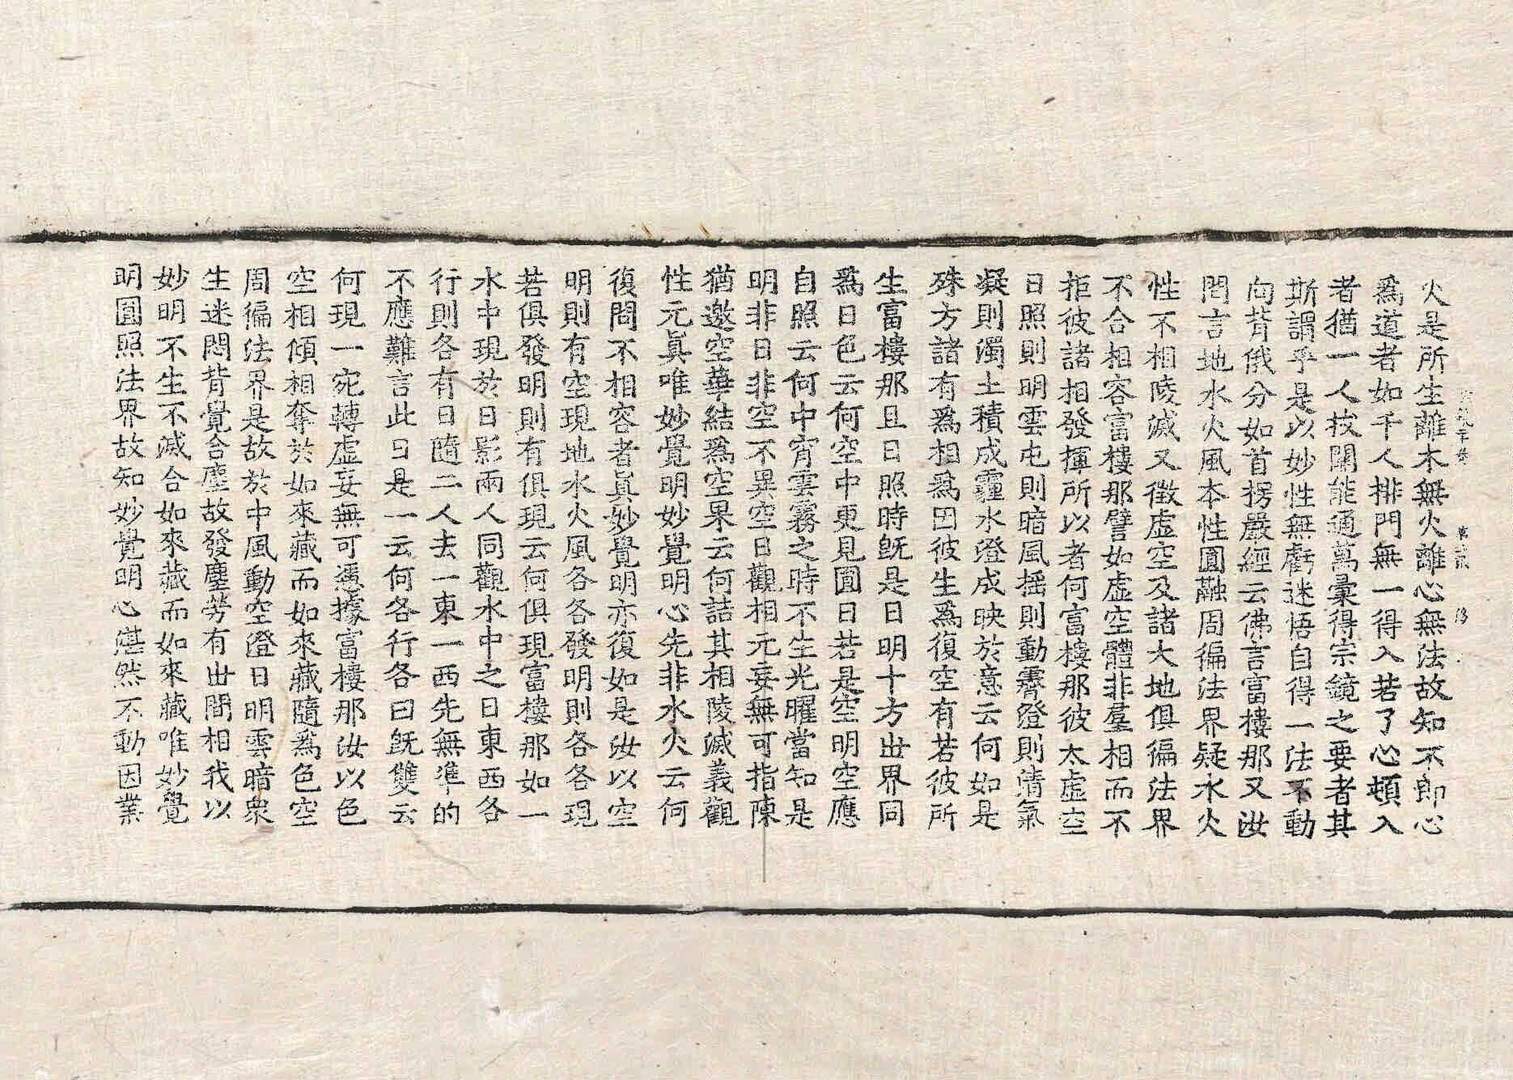 火是所生離木無火離心無法故知不即心
爲道者如千人排門無一得入若了心頓入
者猶一人拔關能通萬彙得宗鏡之要者其
斯謂乎是以妙性無虧迷悟自得一法不動
向背俄分如首楞嚴經云佛言富樓那又汝
問言地水火風本性圓融周徧法界疑水火
性不相陵滅又徵虛空及諸大地俱徧法界
不合相容富樓那譬如虛空體非羣相而不
拒彼諸相發揮所以者何富樓那彼太虛空
日照則明雲屯則暗風搖則動霽澄則清氣
凝則濁土積成霾水澄成映於意云何如是
殊方諸有爲相爲因彼生爲復空有若彼所
生富樓那且日照時旣是日明十方世界同
爲日色云何空中更見圓日若是空明空應
自照云何中宵雲霧之時不生光曜當知是
明非日非空不異空日觀相元妄無可指陳
猶邀空華結爲空果云何詰其相陵滅義觀
性元眞唯妙覺明妙覺明心先非水火云何
復問不相容者眞妙覺明亦復如是汝以空
明則有空現地水火風各各發明則各各現
若俱發明則有俱現云何俱現富樓那如一
水中現於日影兩人同觀水中之日東西各
行則各有日隨二人去一東一西先無準的
不應難言此日是一云何各行各日旣雙云
何現一宛轉虛妄無可憑據富樓那汝以色
空相傾相奪於如來藏而如來藏隨爲色空
周徧法界是故於中風動空澄日明雲暗衆
生迷悶背覺合塵故發塵勞有世間相我以
妙明不生不滅合如來藏而如來藏唯妙覺
明圓照法界故知妙覺明心湛然不動因業